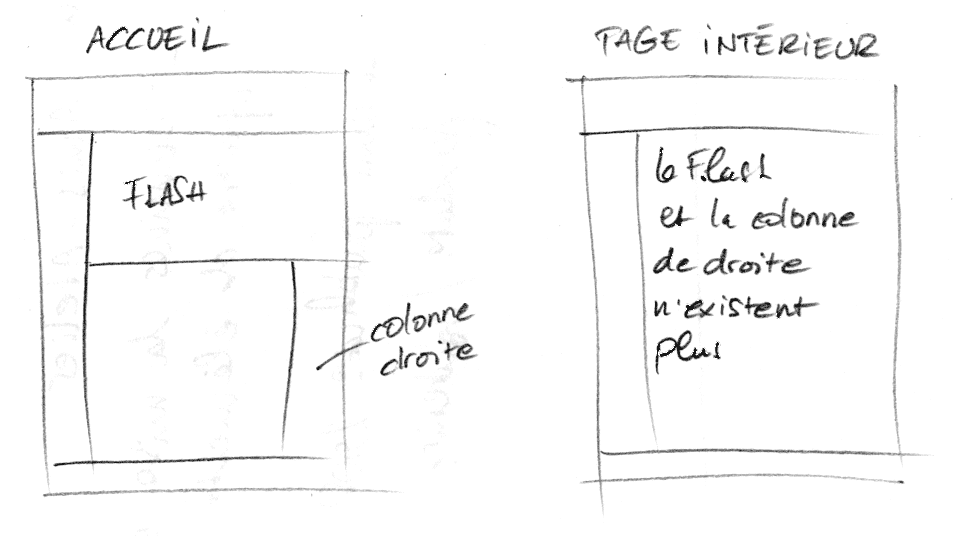 ACCUEIL
FLASH
colonne
droite
PAGE INTÉRIEUR
le Flash
et la colonne
de droite
n'existent
plus